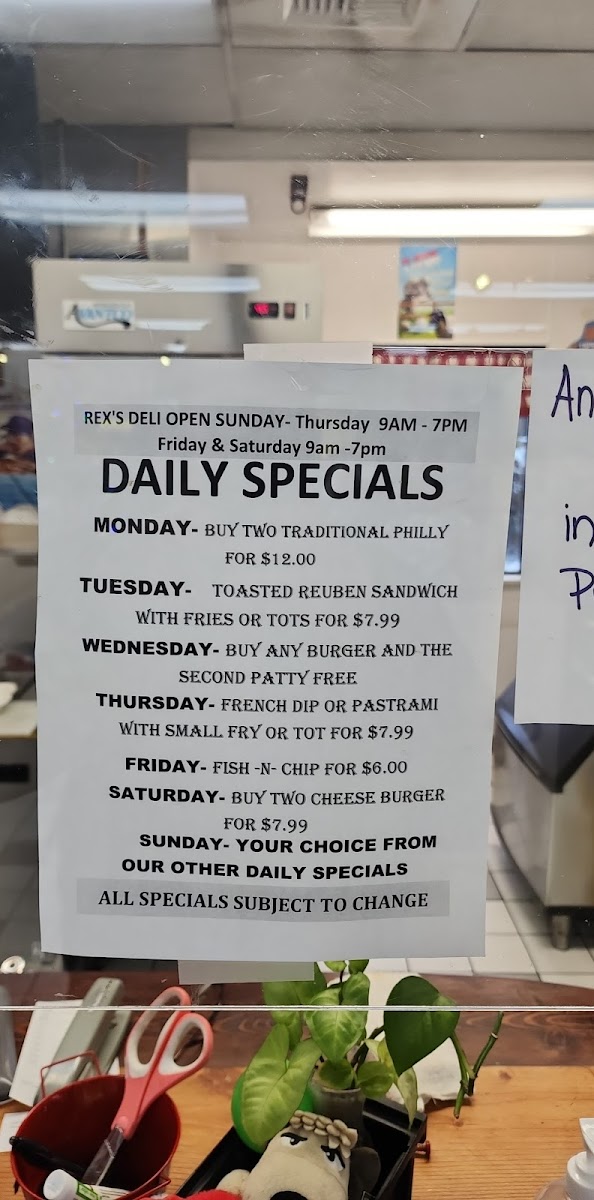 AVANTCO
REX'S DELI OPEN SUNDAY- Thursday 9AM - 7PM
Friday & Saturday 9am -7pm
DAILY SPECIALS
MONDAY- BUY TWO TRADITIONAL PHILLY
FOR $12.00
TUESDAY- TOASTED REUBEN SANDWICH
WITH FRIES OR TOTS FOR $7.99
WEDNESDAY- BUY ANY BURGER AND THE
SECOND PATTY FREE
THURSDAY- FRENCH DIP OR PASTRAMI
WITH SMALL FRY OR TOT FOR $7.99
FRIDAY- FISH -N- CHIP FOR $6.00
SATURDAY- BUY TWO CHEESE BURGER
FOR $7.99
SUNDAY- YOUR CHOICE FROM
OUR OTHER DAILY SPECIALS
ALL SPECIALS SUBJECT TO CHANGE
An
in